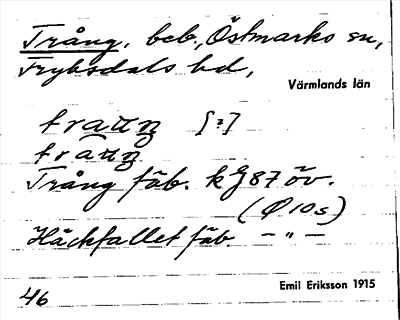 Trång, beb., Östmarks sn,
Fryksdals hd,
Värmlands län
traŋ [?]
Trång fäb. kg 87 öv.
(Ø 10 s)
Häckfallet fäb. — " —
Emil Eriksson 1915
46